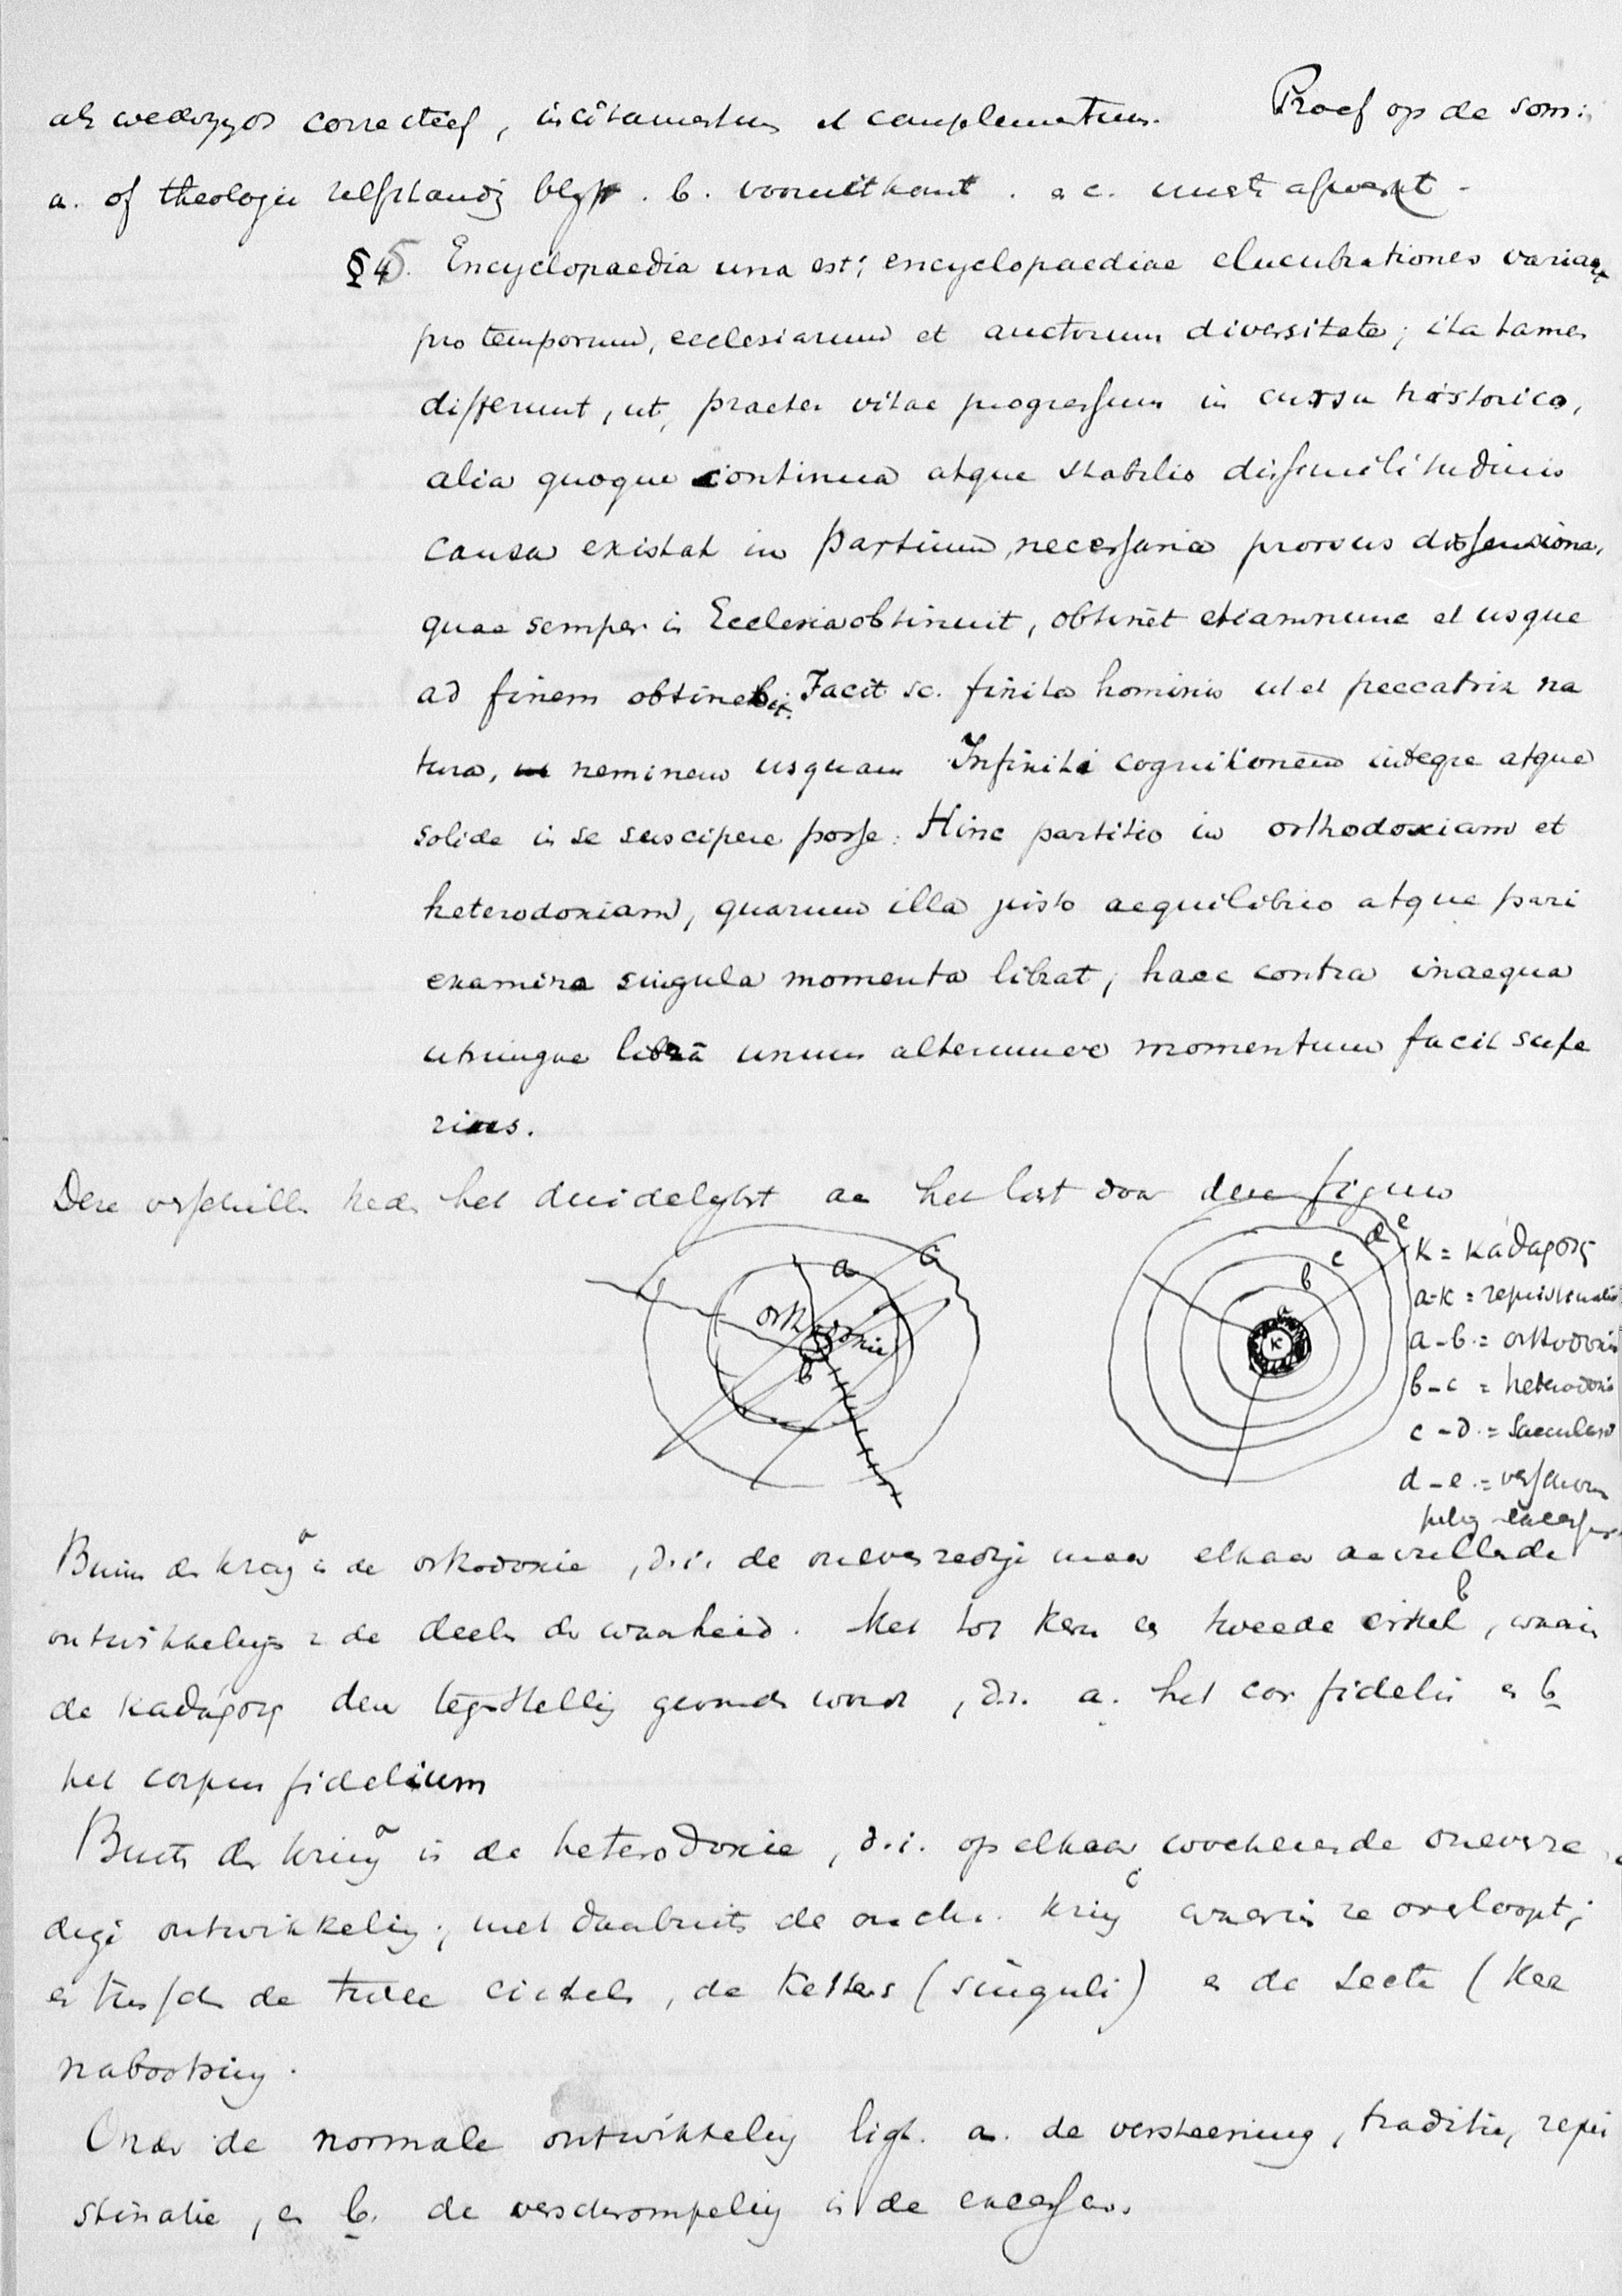 als wederzyds correctief, incitamentum et complementum. Proef op de som:
a. of theologie zelfstandig blyft. b. vooruitkomt. c. niets afwerpt.
§ 5. Encyclopaedia una est; encyclopaediae elucubrationes variae
pro temporum, ecclesiarum et auctorum diversitate; ita tamen
differunt, ut, praeter vitae progressum in cursu historico,
alia quoque continua atque stabilis dissimilitudinis
causa existat in partium necessaria prorsus dissensione,
quae semper in Ecclesia obtinuit, obtinet etiamnunc et usque
ad finem obtinebit. Facit sc. finita hominis ut et peccatrix na
tura, neminem usquam Infiniti cognitionem integre atque
solide in se suscipere posse. Hinc partitio in orthodoxiam et
heterodoxiam, quarum illa justo aequilibrio atque pari
examine singula momenta librat, haec contra inaequa
utrinque librā unum alterumve momentum facit supe
rius.
Deze verschillen het duidelykst het door deze figuur
a
c
orthodoxie
b
a
b
c
d
e
K
K = κάθαρσις
a-K = repristinatie
a-b = orthodoxie
b-c = heterodoxie
c-d = Saeculaire
d-e =
Binnen den kring a is de orthodoxie, d.i. de onevenredige maar elkaar aanvullende
ontwikkeling de deelen der waarheid. Met tot kern een tweede cirkel b, waarin
de καθαρσις der tegenstelling gevonden wordt, d.i. a. het cor fidelis en b
het corpus fidelium
Buiten den kring a is de heterodoxie, d.i. op elkaar onevenre
dige ontwikkeling; met daarbuiten de kring c waarin ze overloopt;
en tusschen de twee cirkels, de Ketters (singuli) en de Secte (Ker
nabootsing.
Onder de normale ontwikkeling ligt. a. de versteening, traditie, repri
stinatie, en b. de verschrompeling in de excessen.